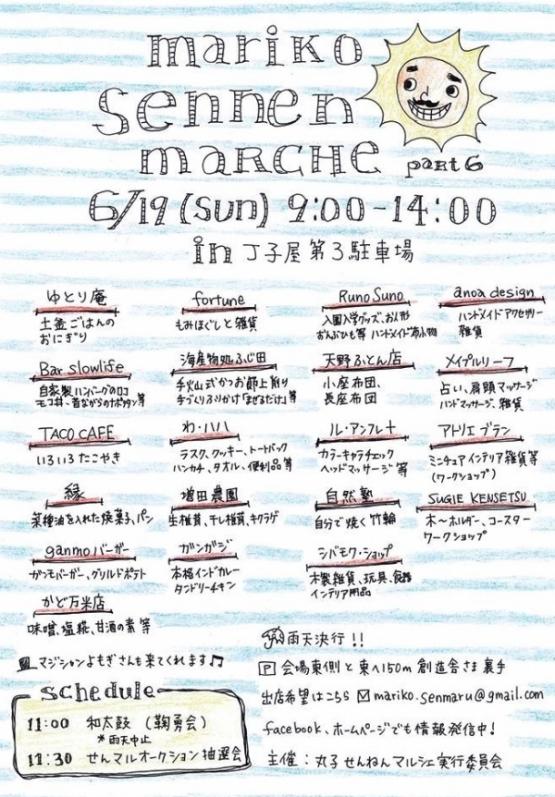 mariko
sennen
marche part 6
6/19 (sun) 9:00-14:00
in 丁子屋 第3駐車場
ゆとり庵
土釜ごはんの
おにぎり
fortune
もみほぐしと雑貨
Runo Suno
入園入学グッズ、お人形
おんぶひも等 ハンドメイド布小物
anoa design
ハンドメイドアクセサリー
雑貨
Bar slowlife
自家製ハンバーグのロコ
モコ丼、昔ながらのナポリタン等
海産物処ふじ田
手火山式かつお節上削り
手づくりふりかけ「まぜるだけ」等
天野ふとん店
小座布団、
長座布団
メイプルリーフ
占い、肩頭マッサージ
ハンドマッサージ、雑貨
TACO CAFE
いろいろたこやき
わ・ハハ
ラスク、クッキー、トートバック
ハンカチ、タオル、便利品等
ル・アンフレ十
カラーキャラチェック
ヘッドマッサージ 等
アトリエ ブラン
ミニチュアインテリア雑貨等
(ワークショップ)
縁
菜種油を入れた焼菓子、パン
増田農園
生椎茸、干し椎茸、キクラゲ
自然塾
自分で焼く竹輪
SUGIE KENSETSU
木〜ホルダー、コースター
ワークショップ
ganmoバーガー
がんもバーガー、グリルドポテト
ガンガジ
本格インドカレー
タンドリーチキン
シバモク・ショップ
木製雑貨、玩具、食器
インテリア用品
かど万米店
味噌、塩糀、甘酒の素 等
マジシャンよもぎさんも来てくれます♫
schedule
11:00 和太鼓 (鞠勇会)
*雨天中止
11:30 せんマルオークション抽選会
雨天決行!!
P 会場東側と東へ150m 創造舎さま裏手
出店希望はこちら ✉ mariko.senmaru@gmail.com
facebook、ホームページでも情報発信中!
主催:丸子せんねんマルシェ実行委員会